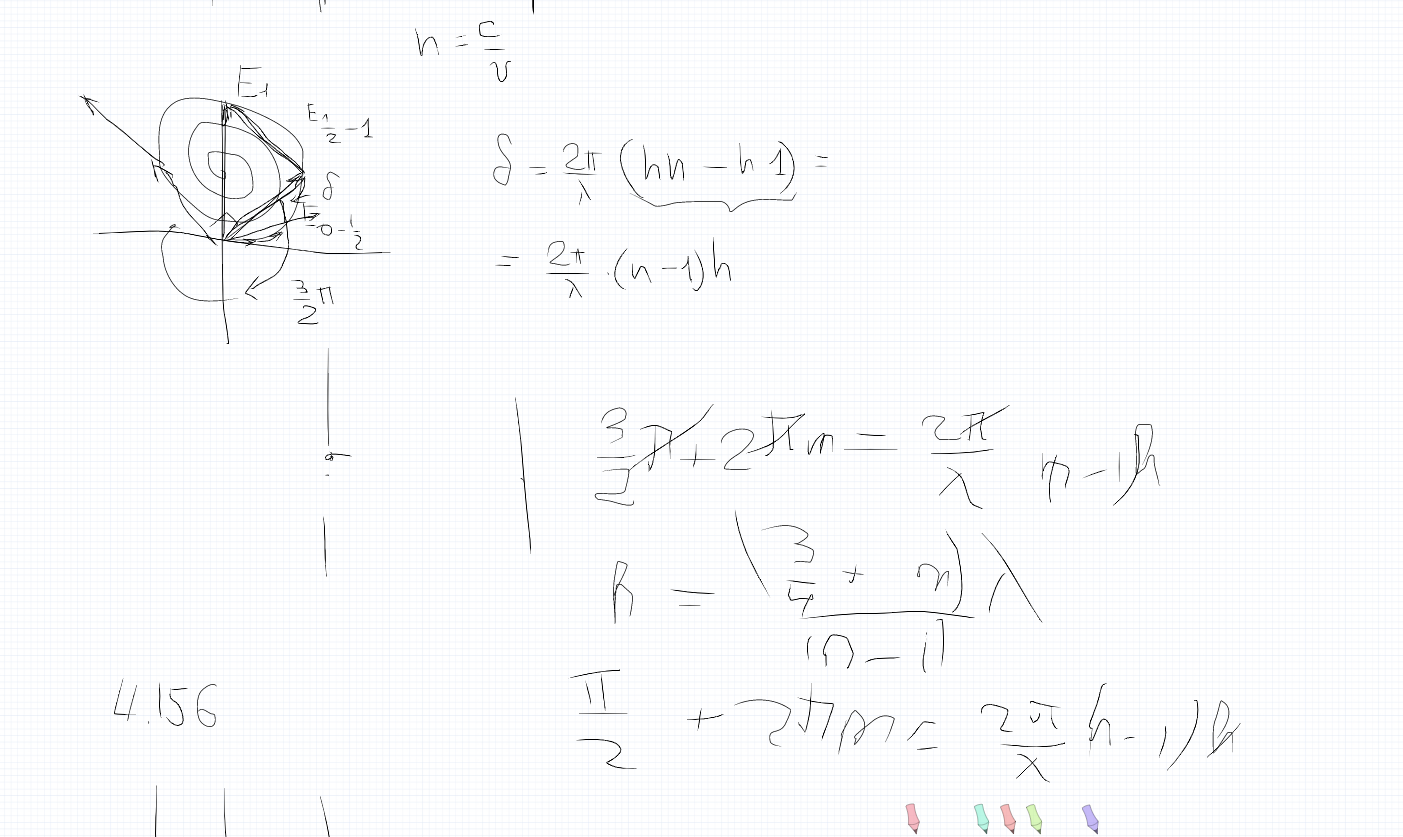 n = c/v
E₁
E₁ 1/2 − 1
δ
0 − 1/2
3/2 π
δ = 2π/λ (hn − h1) =
= 2π/λ · (n−1)h
3/2 π + 2πm = 2π/λ (n−1)h
h = (3/4 + m)λ / (n−1)
4.156
π/2 + 2πm = 2π/λ (n−1)h